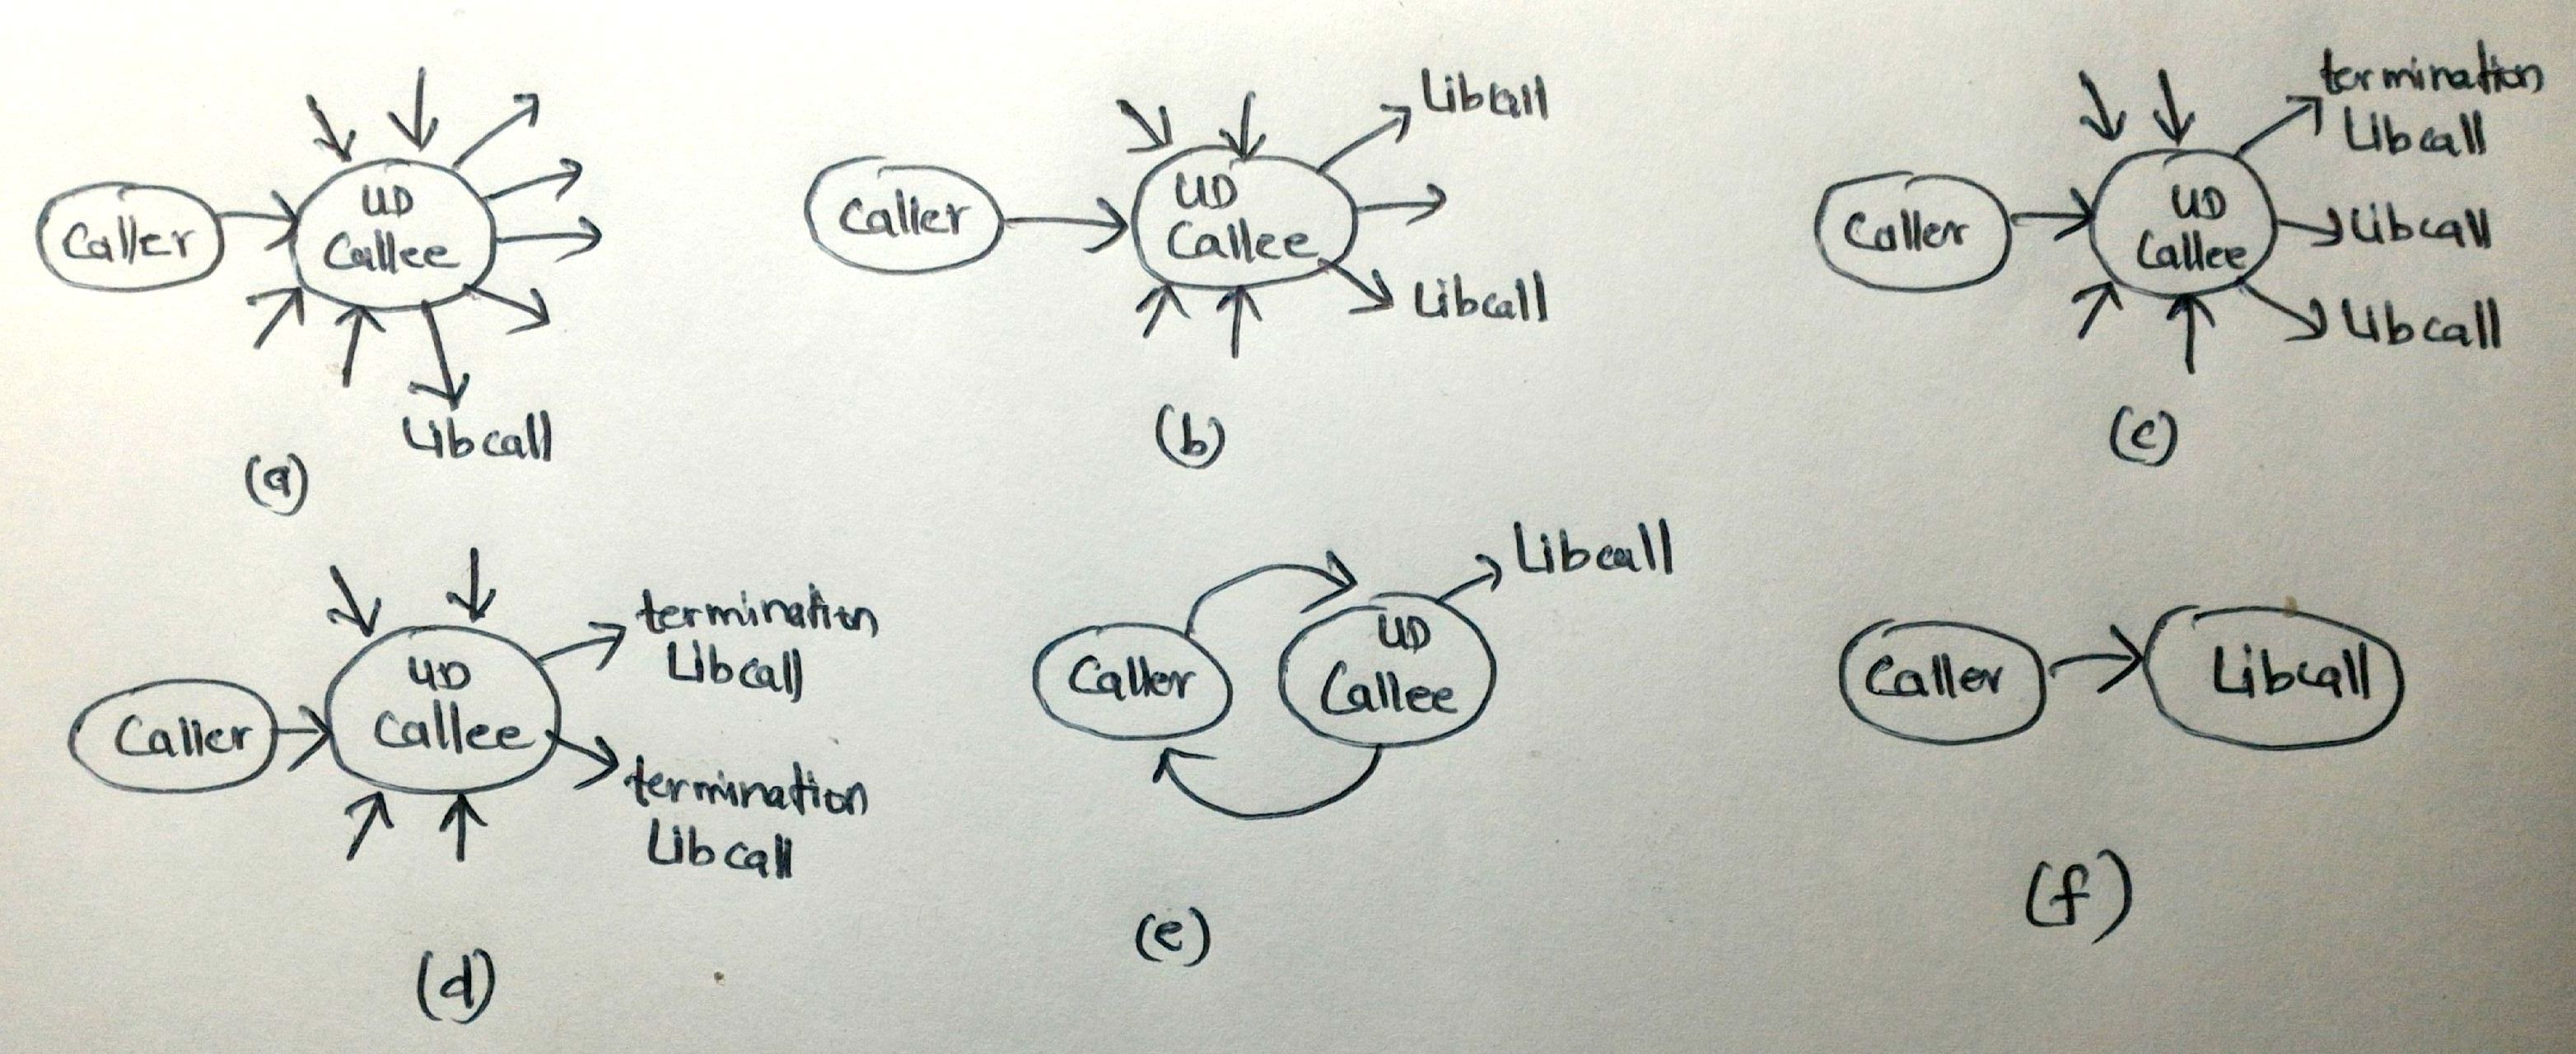 Caller
UD
Callee
Libcall
(a)
Caller
UD
Callee
Libcall
Libcall
(b)
Caller
UD
Callee
termination
Libcall
Libcall
Libcall
(c)
Caller
UD
Callee
termination
Libcall
termination
Libcall
(d)
Caller
UD
Callee
Libcall
(e)
Caller
Libcall
(f)